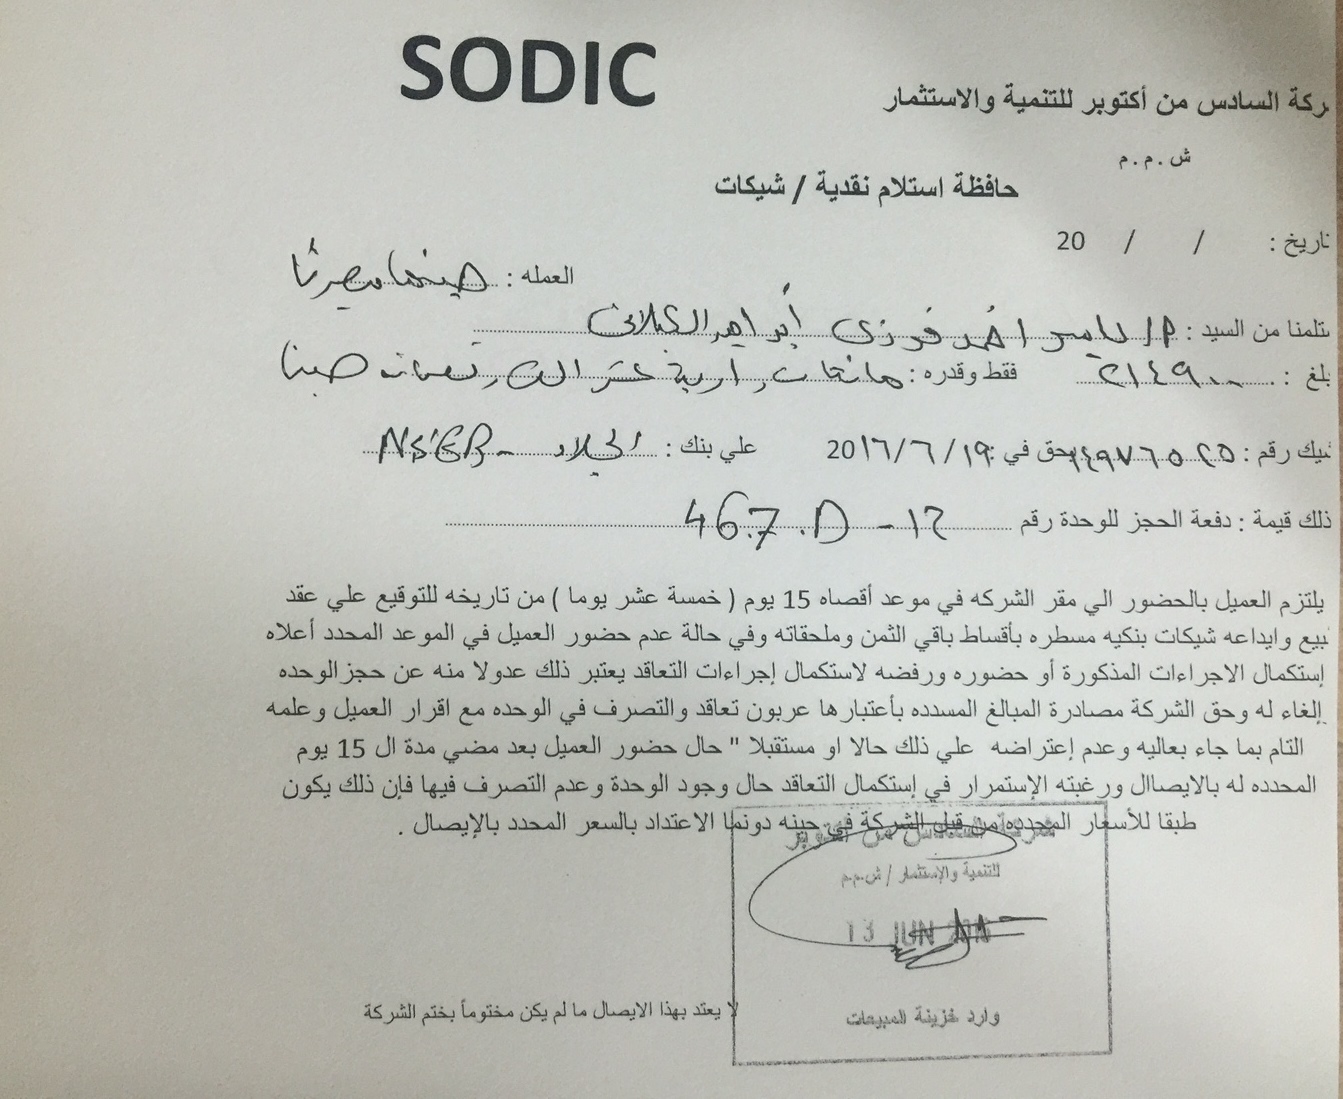 SODIC
ركة السادس من أكتوبر للتنمية والاستثمار
ش . م . م
حافظة استلام نقدية / شيكات
تاريخ : / / 20
العمله : جنيها مصريا
ستلمنا من السيد : م/ ياسر احمد فوزى أبراهيم الكيلانى
بلغ : ٢١٤٩٠٠ فقط وقدره : مائتان واربعة عشر الف وتسعمائة جنيها
شيك رقم : ١٤٩٧٦٥٢٥ حق في : ١٩/٦/٢٠١٦ علي بنك :
ذلك قيمة : دفعة الحجز للوحدة رقم ١٢ - 467.D
يلتزم العميل بالحضور الي مقر الشركه في موعد أقصاه 15 يوم ( خمسة عشر يوما ) من تاريخه للتوقيع علي عقد
بيع وايداعه شيكات بنكيه مسطره بأقساط باقي الثمن وملحقاته وفي حالة عدم حضور العميل في الموعد المحدد أعلاه
إستكمال الاجراءات المذكورة أو حضوره ورفضه لاستكمال إجراءات التعاقد يعتبر ذلك عدولا منه عن حجز الوحده
إلغاء له وحق الشركة مصادرة المبالغ المسدده بأعتبارها عربون تعاقد والتصرف في الوحده مع اقرار العميل وعلمه
التام بما جاء بعاليه وعدم إعتراضه علي ذلك حالا او مستقبلا " حال حضور العميل بعد مضي مدة ال 15 يوم
المحدده له بالايصاال ورغبته الإستمرار في إستكمال التعاقد حال وجود الوحدة وعدم التصرف فيها فإن ذلك يكون
طبقا للأسعار المحدده من قبل الشركة في حينه دونما الاعتداد بالسعر المحدد بالإيصال .
شركة السادس من أكتوبر
للتنمية والإستثمار / ش.م.م
13 JUN 2016
وارد خزينة المبيعات
لا يعتد بهذا الايصال ما لم يكن مختوماً بختم الشركة